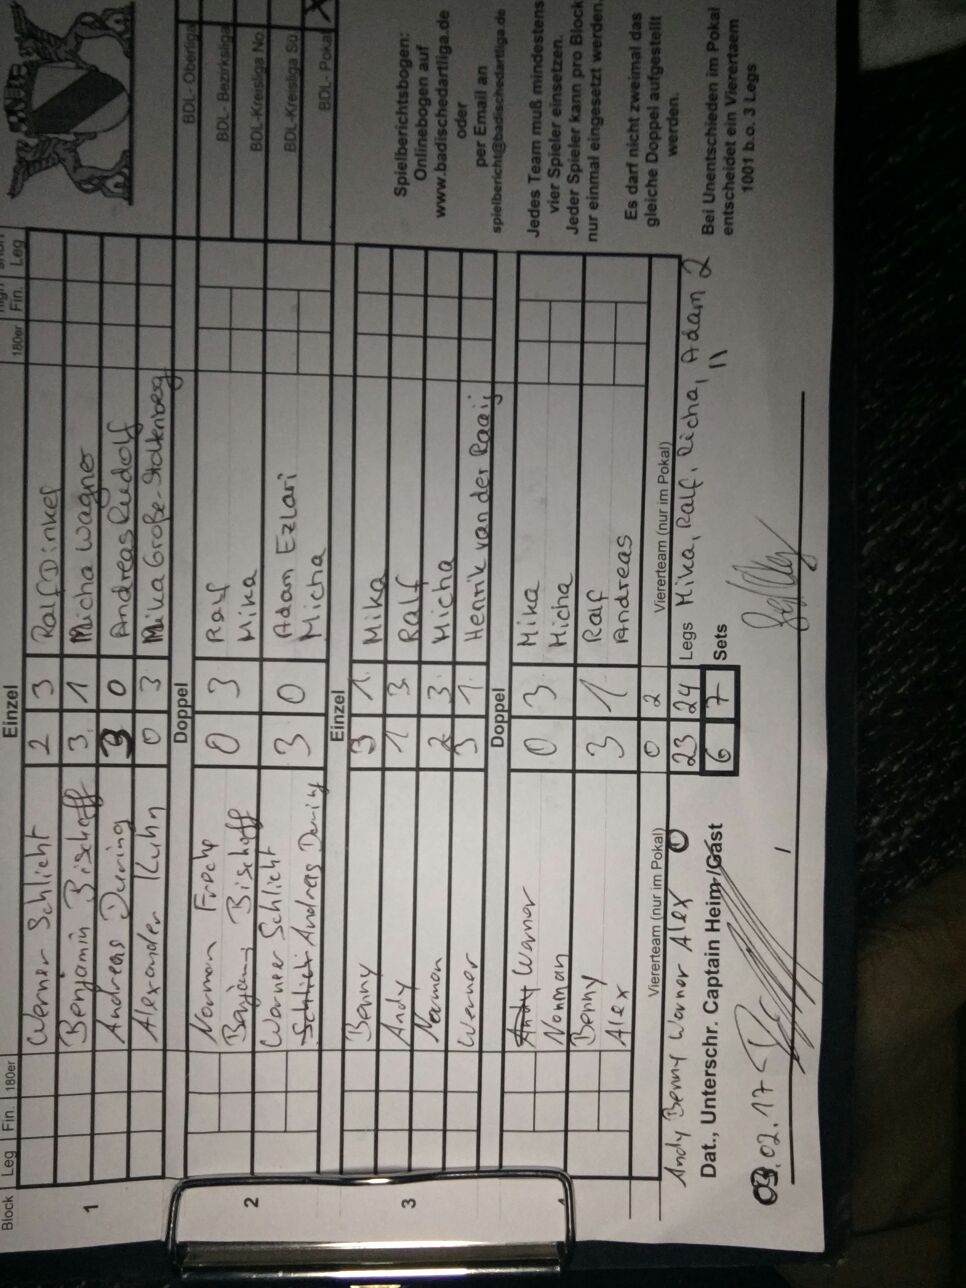 BDL- Oberliga
BDL- Bezirksliga
BDL-Kreisliga No.
BDL-Kreisliga Sü
BDL- Pokal X
Block Leg Fin. 180er Einzel 180er Fin. Leg
1
Werner Schlicht 2 3 Ralf Dinkel
Benjamin Bischoff 3 1 Micha Wagner
Andreas Düring 3 0 Andreas Rudolf
Alexander Kuhn 0 3 Mika Große-Stoltenberg
Doppel
2
Norman 0 3 Ralf
Benjamin Bischoff Mika
Werner Schlicht 3 0 Adam Ezlari
Andreas Düring Micha
Einzel
3
Benny 3 1 Mika
Andy 1 3 Ralf
Norman 2 3 Micha
Werner 3 1 Henrik van der Raaij
Doppel
Andy Werner 0 3 Mika
Norman Micha
Benny 3 1 Ralf
Alex Andreas
Viererteam (nur im Pokal) 0 2 Viererteam (nur im Pokal)
Andy Benny Werner Alex 0 23 24 Legs Mika, Ralf, Micha, Adam 2
6 7 Sets
Dat., Unterschr. Captain Heim-/Gast
03.02.17
Spielberichtsbogen:
Onlinebogen auf
www.badischedartliga.de
oder
per Email an
spielbericht@badischedartliga.de
Jedes Team muß mindestens
vier Spieler einsetzen.
Jeder Spieler kann pro Block
nur einmal eingesetzt werden.
Es darf nicht zweimal das
gleiche Doppel aufgestellt
werden.
Bei Unentschieden im Pokal
entscheidet ein Viererteam
1001 b.o. 3 Legs